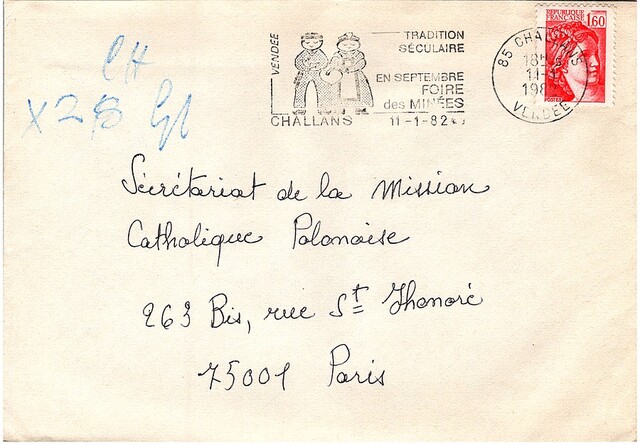 CH
X 28
VENDÉE
CHALLANS
TRADITION
SÉCULAIRE
EN SEPTEMBRE
FOIRE
des MINÉES
11-1-82
85 CHALLANS
18H
11-1
198
VENDÉE
RÉPUBLIQUE
FRANÇAISE
1,60
POSTES
Sécrétariat de la Mission
Catholique Polonaise
263 Bis, rue St Thonoré
75001 Paris